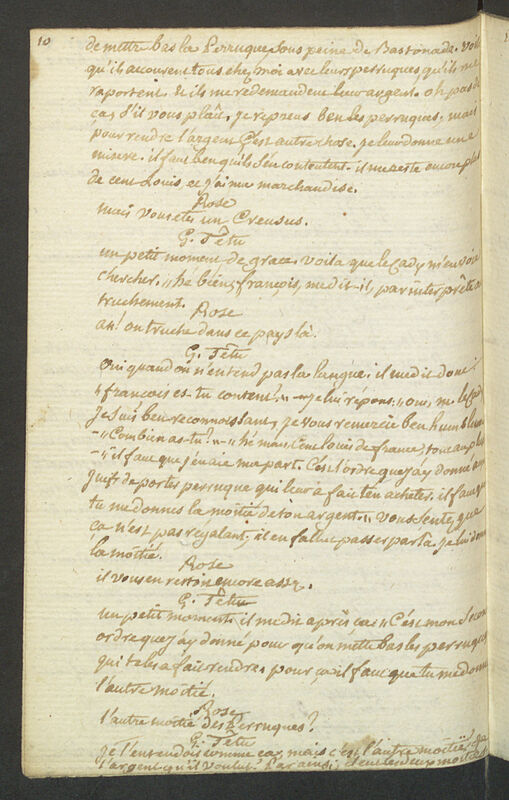 10
de mettre bas la Perruque sous peine de Bastonade. Voila
qu'ils accourent tous chez moi avec leurs perruques qu'ils me
raportent. & ils me redemandent leur argent. oh pas de
ça, s'il vous plaît. je reprens ben les perruques, mais
pour rendre l'argent C'est autre chose. je leur donne une
misere. il faut ben qu'ils s'en contentent. il me reste encore plus
de cent Louis, et j'ai ma marchandise.
Rose
mais vous etes un Creusus.
G. Têtu
un petit moment de grace. voila que le Cady m'envoie
chercher. " hé bien, françois, me dit-il, par interprête
truchement.
Rose
ah! on truche dans ce pays là.
G. Têtu
Oui quand on n'entend pas la langue. il me dit donc :
" françois es-tu content? " — je lui répons: " oui, m. le Cady
je suis ben reconnoissant, je vous remercie ben humblement
— " Combien as-tu? " — " hé mais, Cent louis de france, tout au plus
— " il faut que j'en aie ma part. C'est l'ordre que j'ay donné aux
Juifs de porter perruque qui leur a fait t'en acheter. il faut que
tu me donnes la moitié de ton argent. " Vous sentez que
ça n'est pas régalant; il en fallut passer par là. je lui donne
la moitié.
Rose
il vous en reste encore assez.
G. Têtu
un petit moment. il me dit après ça: " C'est mon second
ordre que j'ay donné pour qu'on mette bas les perruques
qui te les a fait rendre. pour ça il faut que tu me donnes
l'autre moitié.
Rose
l'autre moitié des Perruques?
G. Têtu
je l'entendois comme ça, mais c'est l'autre moitié de
l'argent qu'il voulut. Par ainsi, il eut les deux moitiés